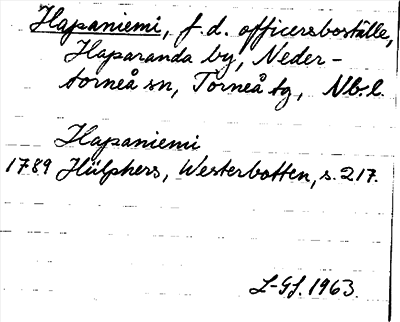 Hapaniemi, f.d. officersboställe,
Haparanda by, Neder-
torneå sn, Torneå tg, Nb.l.
Hapaniemi
1789 Hülphers, Westerbotten, s. 217.
L-GL. 1963.